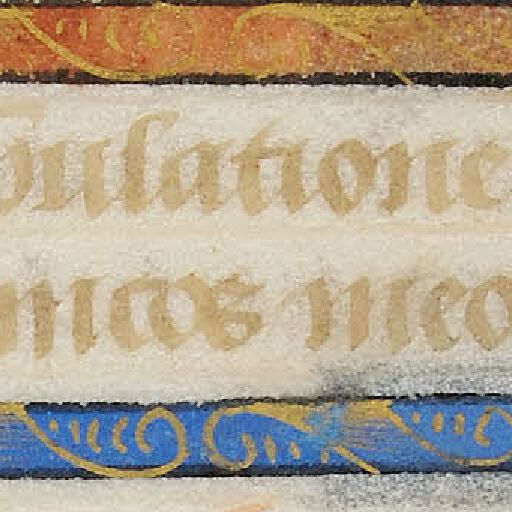 bulatione
micos meo